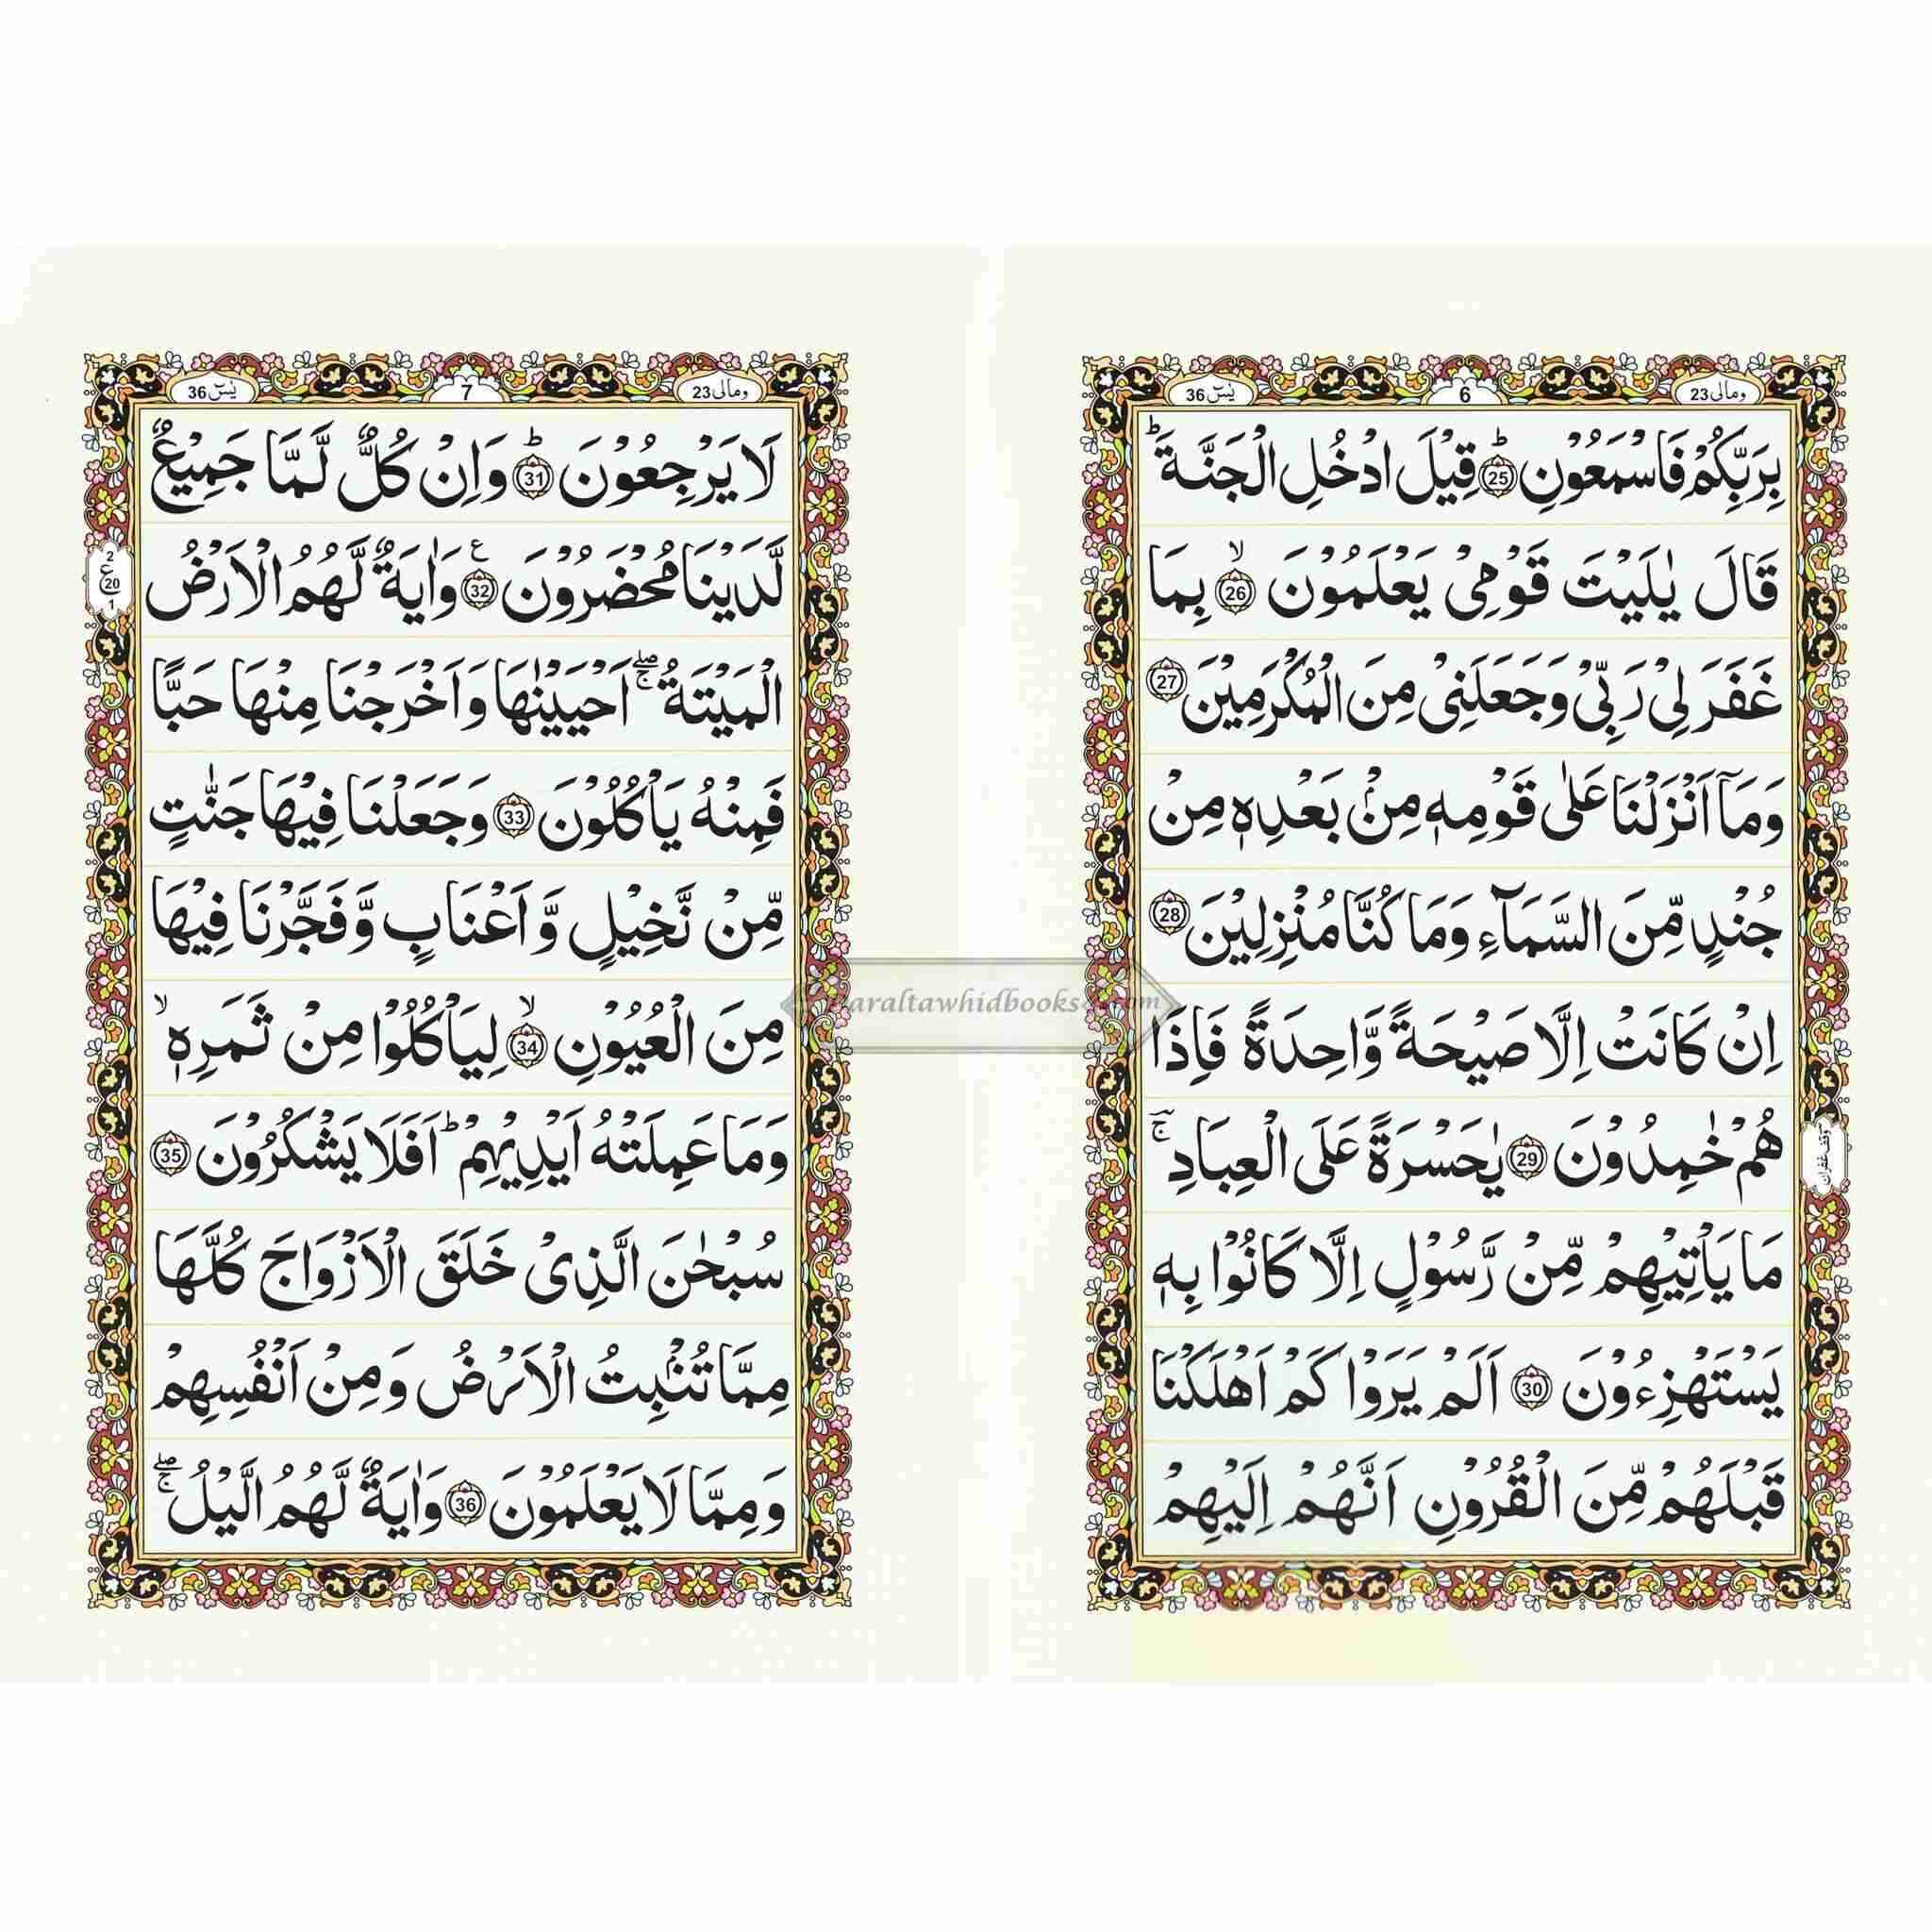 ومالی 23
6
یٰسٓ 36
بِرَبِّكُمْ فَاسْمَعُوْنِ ؕ 25 قِيْلَ ادْخُلِ الْجَنَّةَ ؕ
قَالَ يٰلَيْتَ قَوْمِيْ يَعْلَمُوْنَ ۙ 26 بِمَا
غَفَرَ لِيْ رَبِّيْ وَجَعَلَنِيْ مِنَ الْمُكْرَمِيْنَ 27
وَمَاۤ اَنْزَلْنَا عَلٰى قَوْمِهٖ مِنْۢ بَعْدِهٖ مِنْ
جُنْدٍ مِّنَ السَّمَآءِ وَمَا كُنَّا مُنْزِلِيْنَ 28
اِنْ كَانَتْ اِلَّا صَيْحَةً وَّاحِدَةً فَاِذَا
هُمْ خٰمِدُوْنَ 29 يٰحَسْرَةً عَلَى الْعِبَادِ ۚ
وقف غفران
مَا يَاْتِيْهِمْ مِّنْ رَّسُوْلٍ اِلَّا كَانُوْا بِهٖ
يَسْتَهْزِءُوْنَ 30 اَلَمْ يَرَوْا كَمْ اَهْلَكْنَا
قَبْلَهُمْ مِّنَ الْقُرُوْنِ اَنَّهُمْ اِلَيْهِمْ
ومالی 23
7
یٰسٓ 36
لَا يَرْجِعُوْنَ ؕ 31 وَاِنْ كُلٌّ لَّمَّا جَمِيْعٌ
لَّدَيْنَا مُحْضَرُوْنَ ع 32 وَاٰيَةٌ لَّهُمُ الْاَرْضُ
2 ع 20 1
الْمَيْتَةُ ۖۚ اَحْيَيْنٰهَا وَاَخْرَجْنَا مِنْهَا حَبًّا
فَمِنْهُ يَاْكُلُوْنَ 33 وَجَعَلْنَا فِيْهَا جَنّٰتٍ
مِّنْ نَّخِيْلٍ وَّاَعْنَابٍ وَّفَجَّرْنَا فِيْهَا
مِنَ الْعُيُوْنِ ۙ 34 لِيَاْكُلُوْا مِنْ ثَمَرِهٖ ۙ
وَمَا عَمِلَتْهُ اَيْدِيْهِمْ ؕ اَفَلَا يَشْكُرُوْنَ 35
سُبْحٰنَ الَّذِيْ خَلَقَ الْاَزْوَاجَ كُلَّهَا
مِمَّا تُنْۢبِتُ الْاَرْضُ وَمِنْ اَنْفُسِهِمْ
وَمِمَّا لَا يَعْلَمُوْنَ 36 وَاٰيَةٌ لَّهُمُ الَّيْلُ ۖۚ